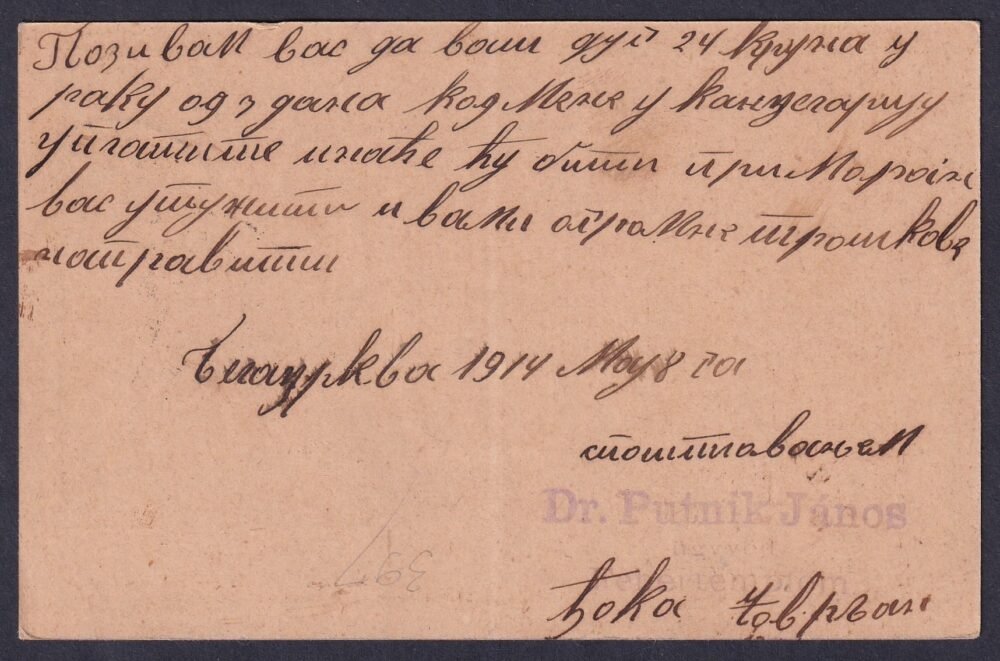 Позивам вас да ваш дуг 24 круна у
року од 3 дана код мене у канцеларију
уплатите иначе ћу бити приморан
вас утужити и вами огромне трошкове
направити
Белацрква 1914 Мај 8 га
споштовањем
Dr. Putnik János
ügyvéd
Fehértemplom
Ђока
397